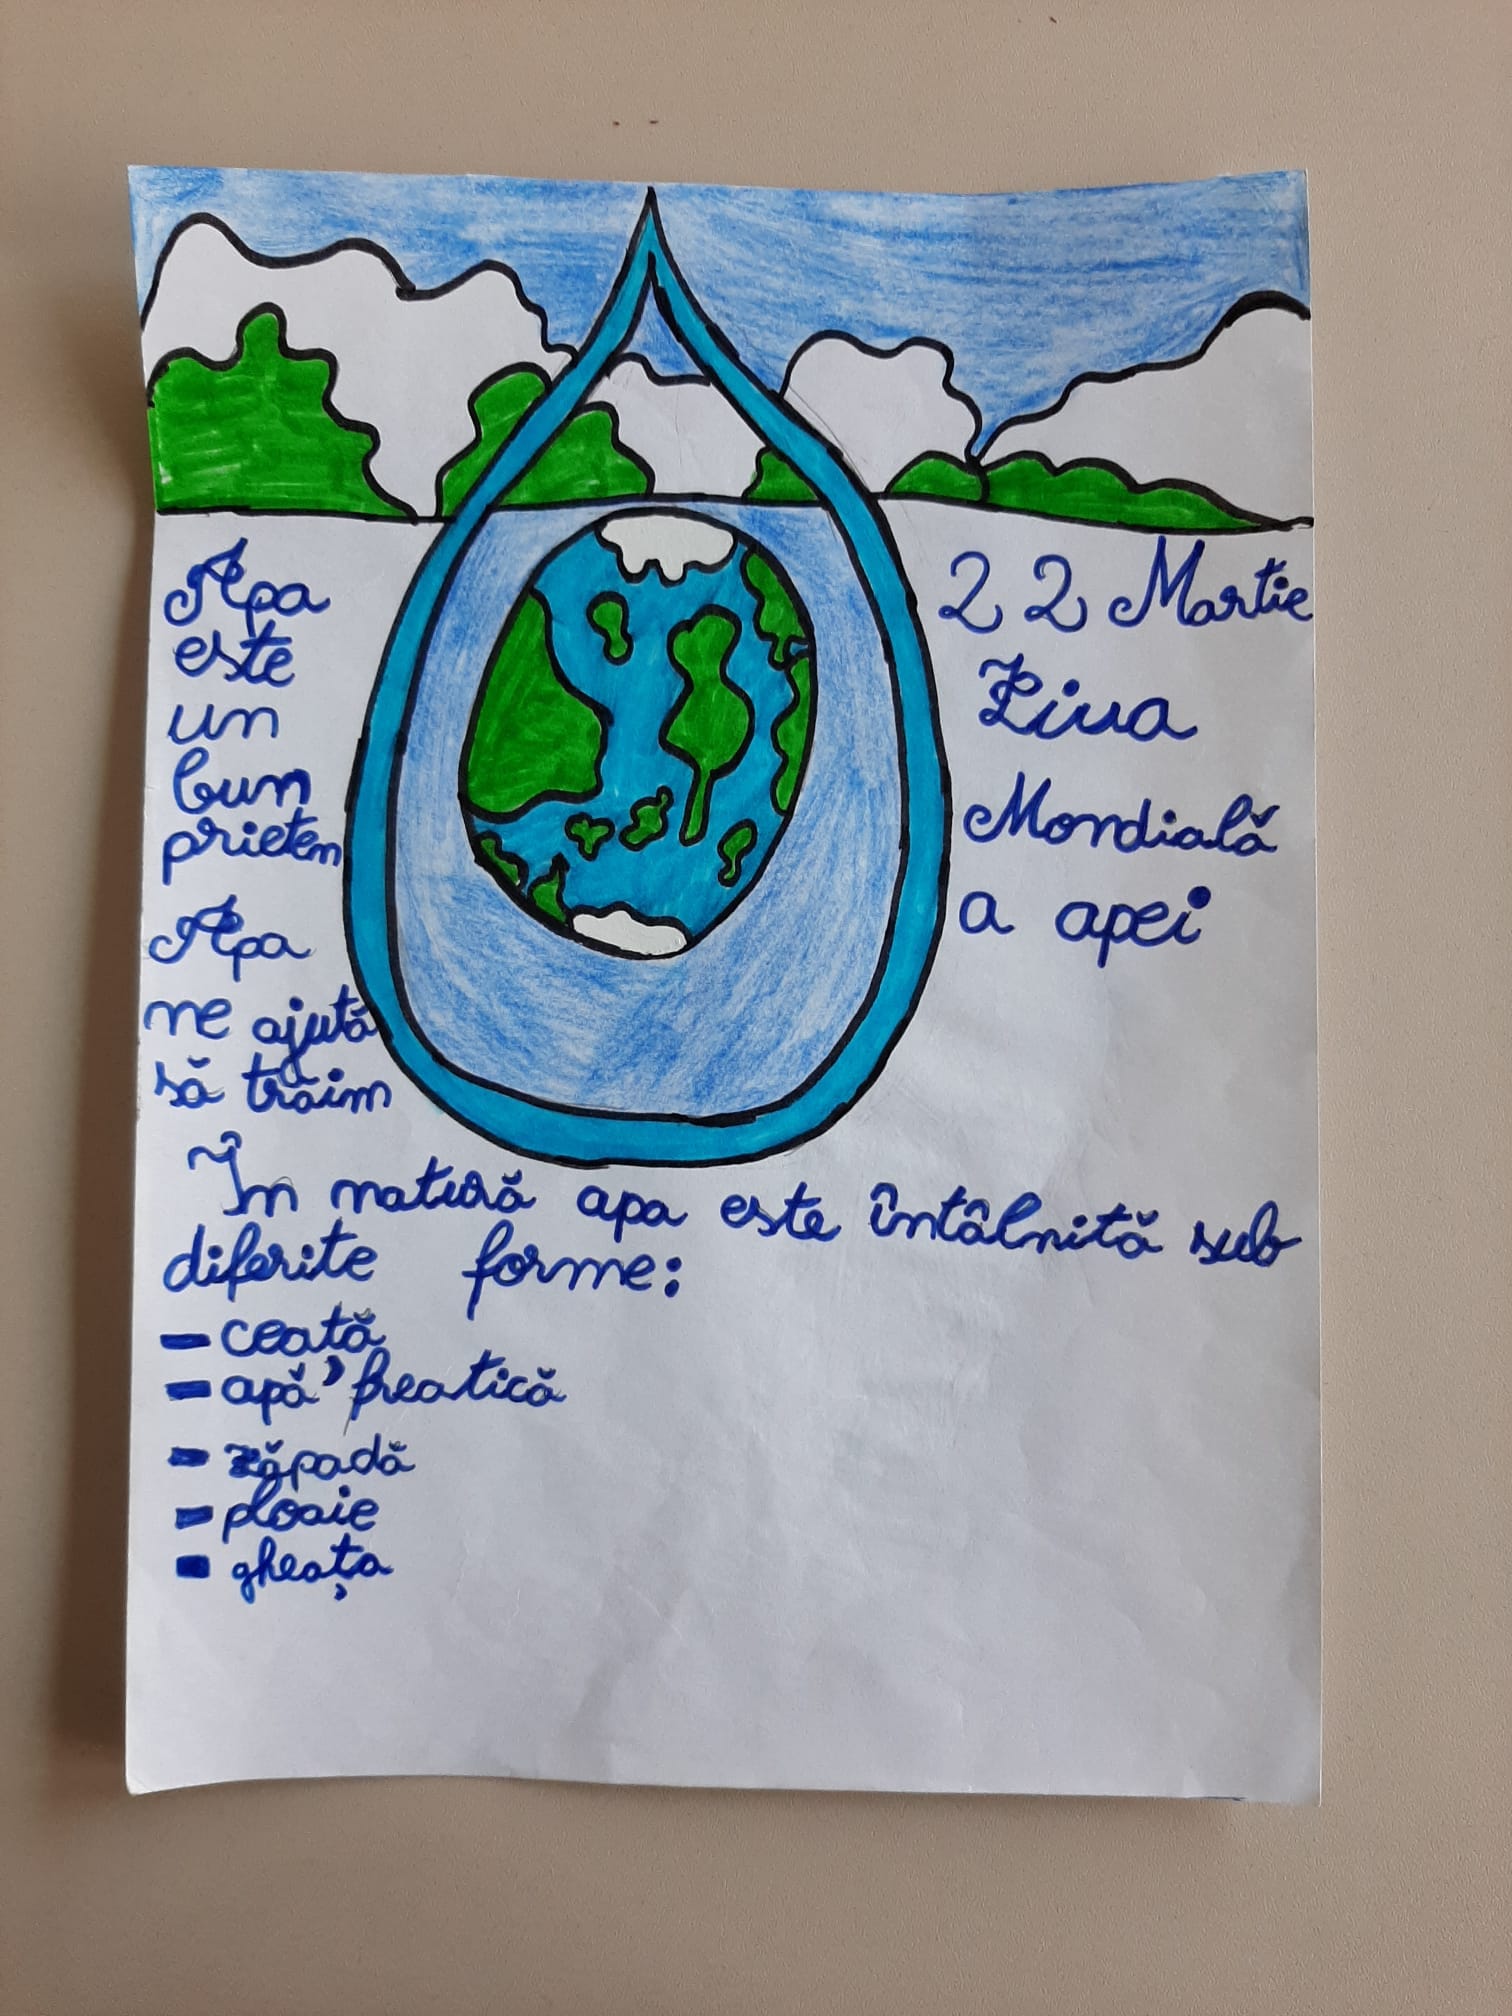 Apa
este
un
bun
prieten
Apa
ne ajută
să trăim
22 Martie
Ziua
Mondială
a apei
În natură apa este întâlnită sub
diferite forme:
- ceață
- apă freatică
- zăpadă
- ploaie
- gheața